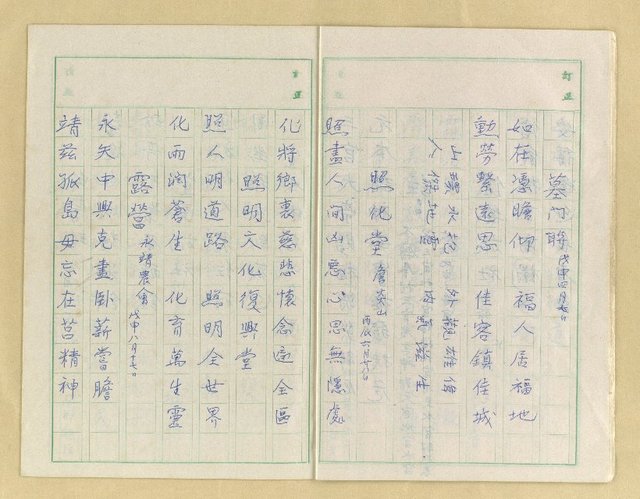 訂正
墓門聯 戊申四月七日
如在憑瞻仰 福人居福地
勳勞繫遠思 佳客鎮佳城
山環水抱 外觀雄偉
人傑地靈 內氣
照化堂 詹英山
照盡人間凶惡心思無隱處
訂正
化將鄉裏慈悲懷念遍全區
照明文化復興堂
照人明道路 照明全世界
化雨潤蒼生 化育萬生靈
露營 永靖農會 戊申八月十七日
永矢中興克盡臥薪嘗膽
靖茲孤島毋忘在莒精神